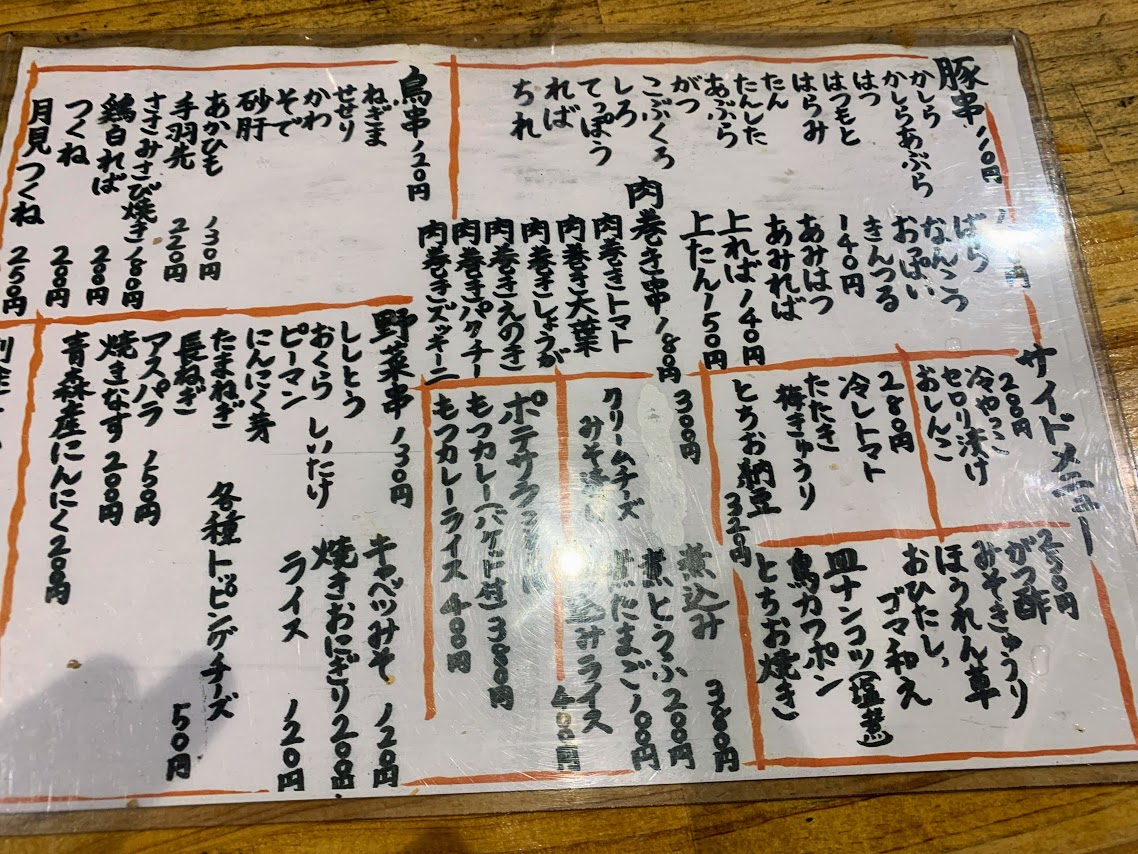 豚串110円
かしら
かしらあぶら
はつ
はつもと
はらみ
たん
たんした
あぶら
がつ
こぶくろ
しろ
てっぽう
れば
ちれ
円
ばら
なんこつ
おっぱい
きんつる
140円
あみはつ
あみれば
上れば140円
上たん150円
肉巻き串180円
肉巻きトマト
肉巻き大葉
肉巻きしょうが
肉巻きえのき
肉巻きパクチー
肉巻きズッキーニ
鳥串120円
ねぎま
せせり
かわ
そで
砂肝
あかひも 130円
手羽先 220円
ささみさび焼き180円
鶏白れば 200円
つくね 200円
月見つくね 250円
サイドメニュー
200円
冷やっこ
セロリ漬け
おしんこ
280円
冷しトマト
たたき
梅きゅうり
とちお納豆
320円
250円
がつ酢
みそきゅうり
ほうれん草
おひたし、
ゴマ和え
皿ナンコツ塩煮
鳥カワポン
とちお焼き
300円
クリームチーズ
煮込み 380円
煮とうふ200円
たまご100円
みライス
400円
ポテサラ
もつカレー(バケット付)380円
もつカレーライス 400円
野菜串130円
ししとう
おくら しいたけ
ピーマン
にんにく芽
たまねぎ
長ねぎ
アスパラ 150円
焼きなす200円
青森産にんにく200円
キャベツみそ 120円
焼きおにぎり200円
ライス 120円
各種トッピングチーズ
50円